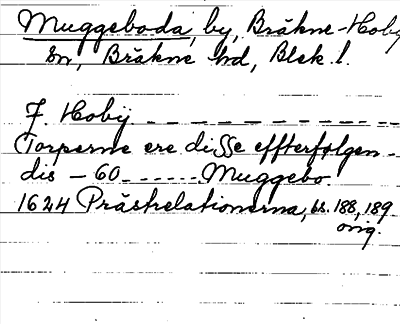 Muggeboda, by, Bräkne-Hoby
sn, Bräkne hd, Blek. l.
J. Hobÿ - - - - - - - - - - -
Torperne ere disse effterfølgen-
dis - 60 - - - - - - Muggebo.
1624 Prästrelationerna, bl. 188, 189
orig.